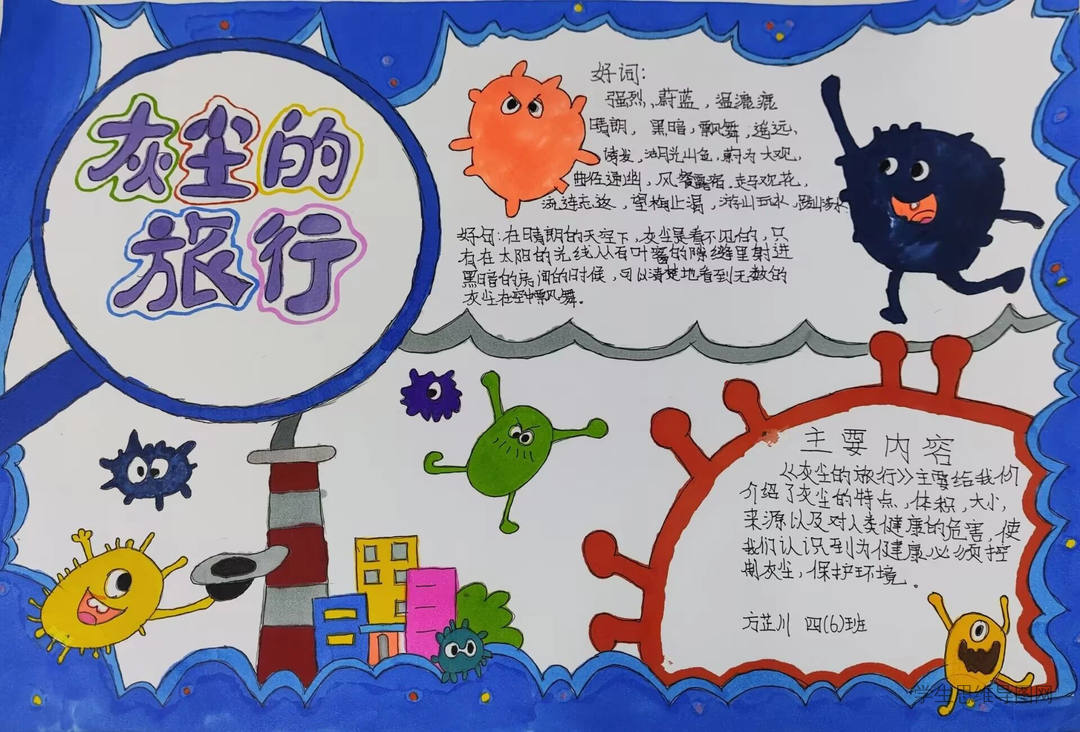 灰尘的
旅行
好词:
强烈,蔚蓝,温漉漉
晴朗,黑暗,飘舞,遥远,
诱发,湖光山色,蔚为大观,
曲径通幽,风餐露宿.走马观花,
流连忘返,望梅止渴,游山玩水,
好句:在晴朗的天空下,灰尘是看不见的,只
有在太阳的光线从百叶窗的隙缝里射进
黑暗的房间的时候,可以清楚地看到无数的
灰尘在空中飘舞。
主要内容
《灰尘的旅行》主要给我们
介绍了灰尘的特点,体积,大小,
来源以及对人类健康的危害,使
我们认识到为健康必须控
制灰尘,保护环境。
方芷川 四(6)班
学生思维导图网